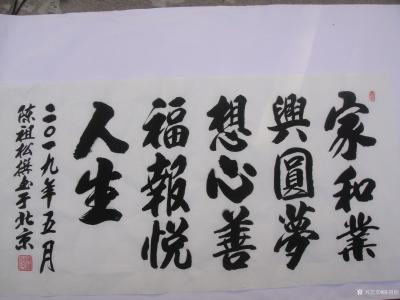 家和業
興圓夢
想心善
福報悅
人生
二〇一九年五月
陳祖松書於北京